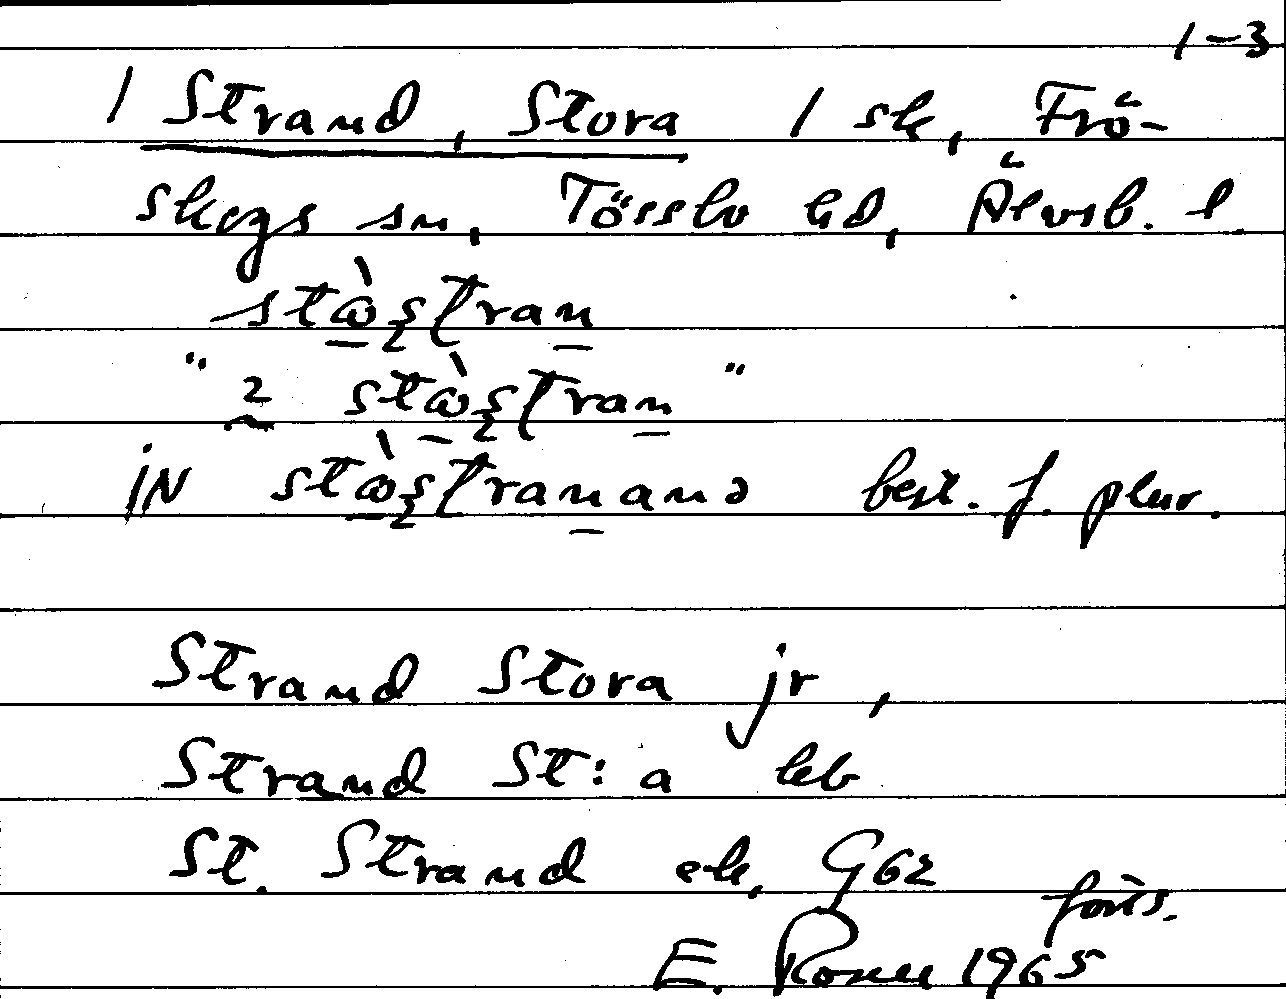 1-3
1 Strand, Stora 1 sk, Frö-
skogs sn, Tössbo hd, Älvsb. l.
stὼʂʈran
" 2 stὼʂʈran "
iN stὼʂʈrananə best. f. plur.
Strand Stora jr,
Strand St:a heb
St. Strand ek, G62
forts.
E. Rosell 1965